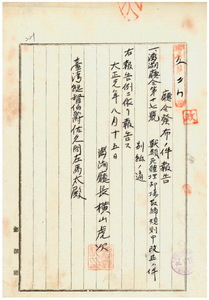 廳令發布ノ件報告
一澎湖廳令第十七號 獸類死體埋却場取締規則中改正ノ件
別紙ノ通
右報告例ニ依リ報告ス
大正元年八月十五日
澎湖廳長橫山虎次
臺灣總督伯爵佐久間左馬太殿